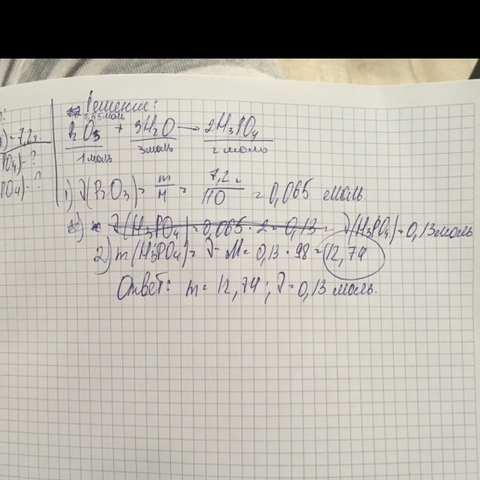 Решение:
0,065 моль
P₂O₃ + 3H₂O → 2H₃PO₄
1 моль 3 моль 2 моль
) = 7,2 г
PO₄) - ?
PO₄) - ?
1) ν(P₂O₃) = m/M = 7,2 г/110 = 0,065 моль
ν(H₃PO₄) = 0,065 · 2 = 0,13 = ν(H₃PO₄) = 0,13 моль
2) m(H₃PO₄) = ν · M = 0,13 · 98 = 12,74
Ответ: m = 12,74; ν = 0,13 моль.